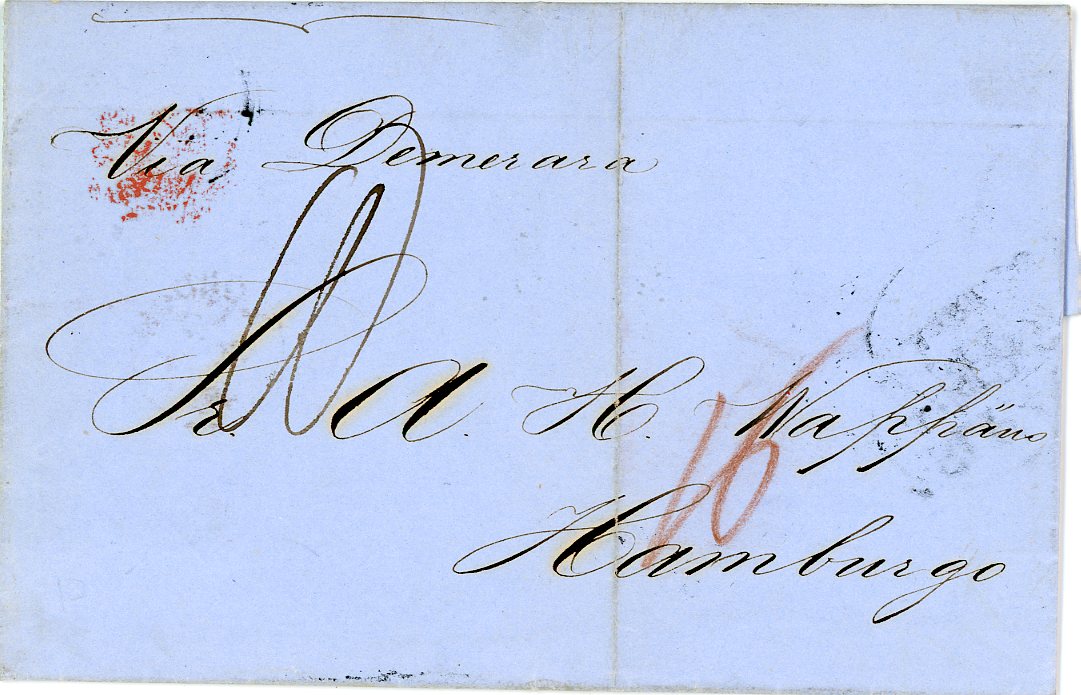 Via Demerara
Sr. A. H. Wappäus
16
Hamburgo